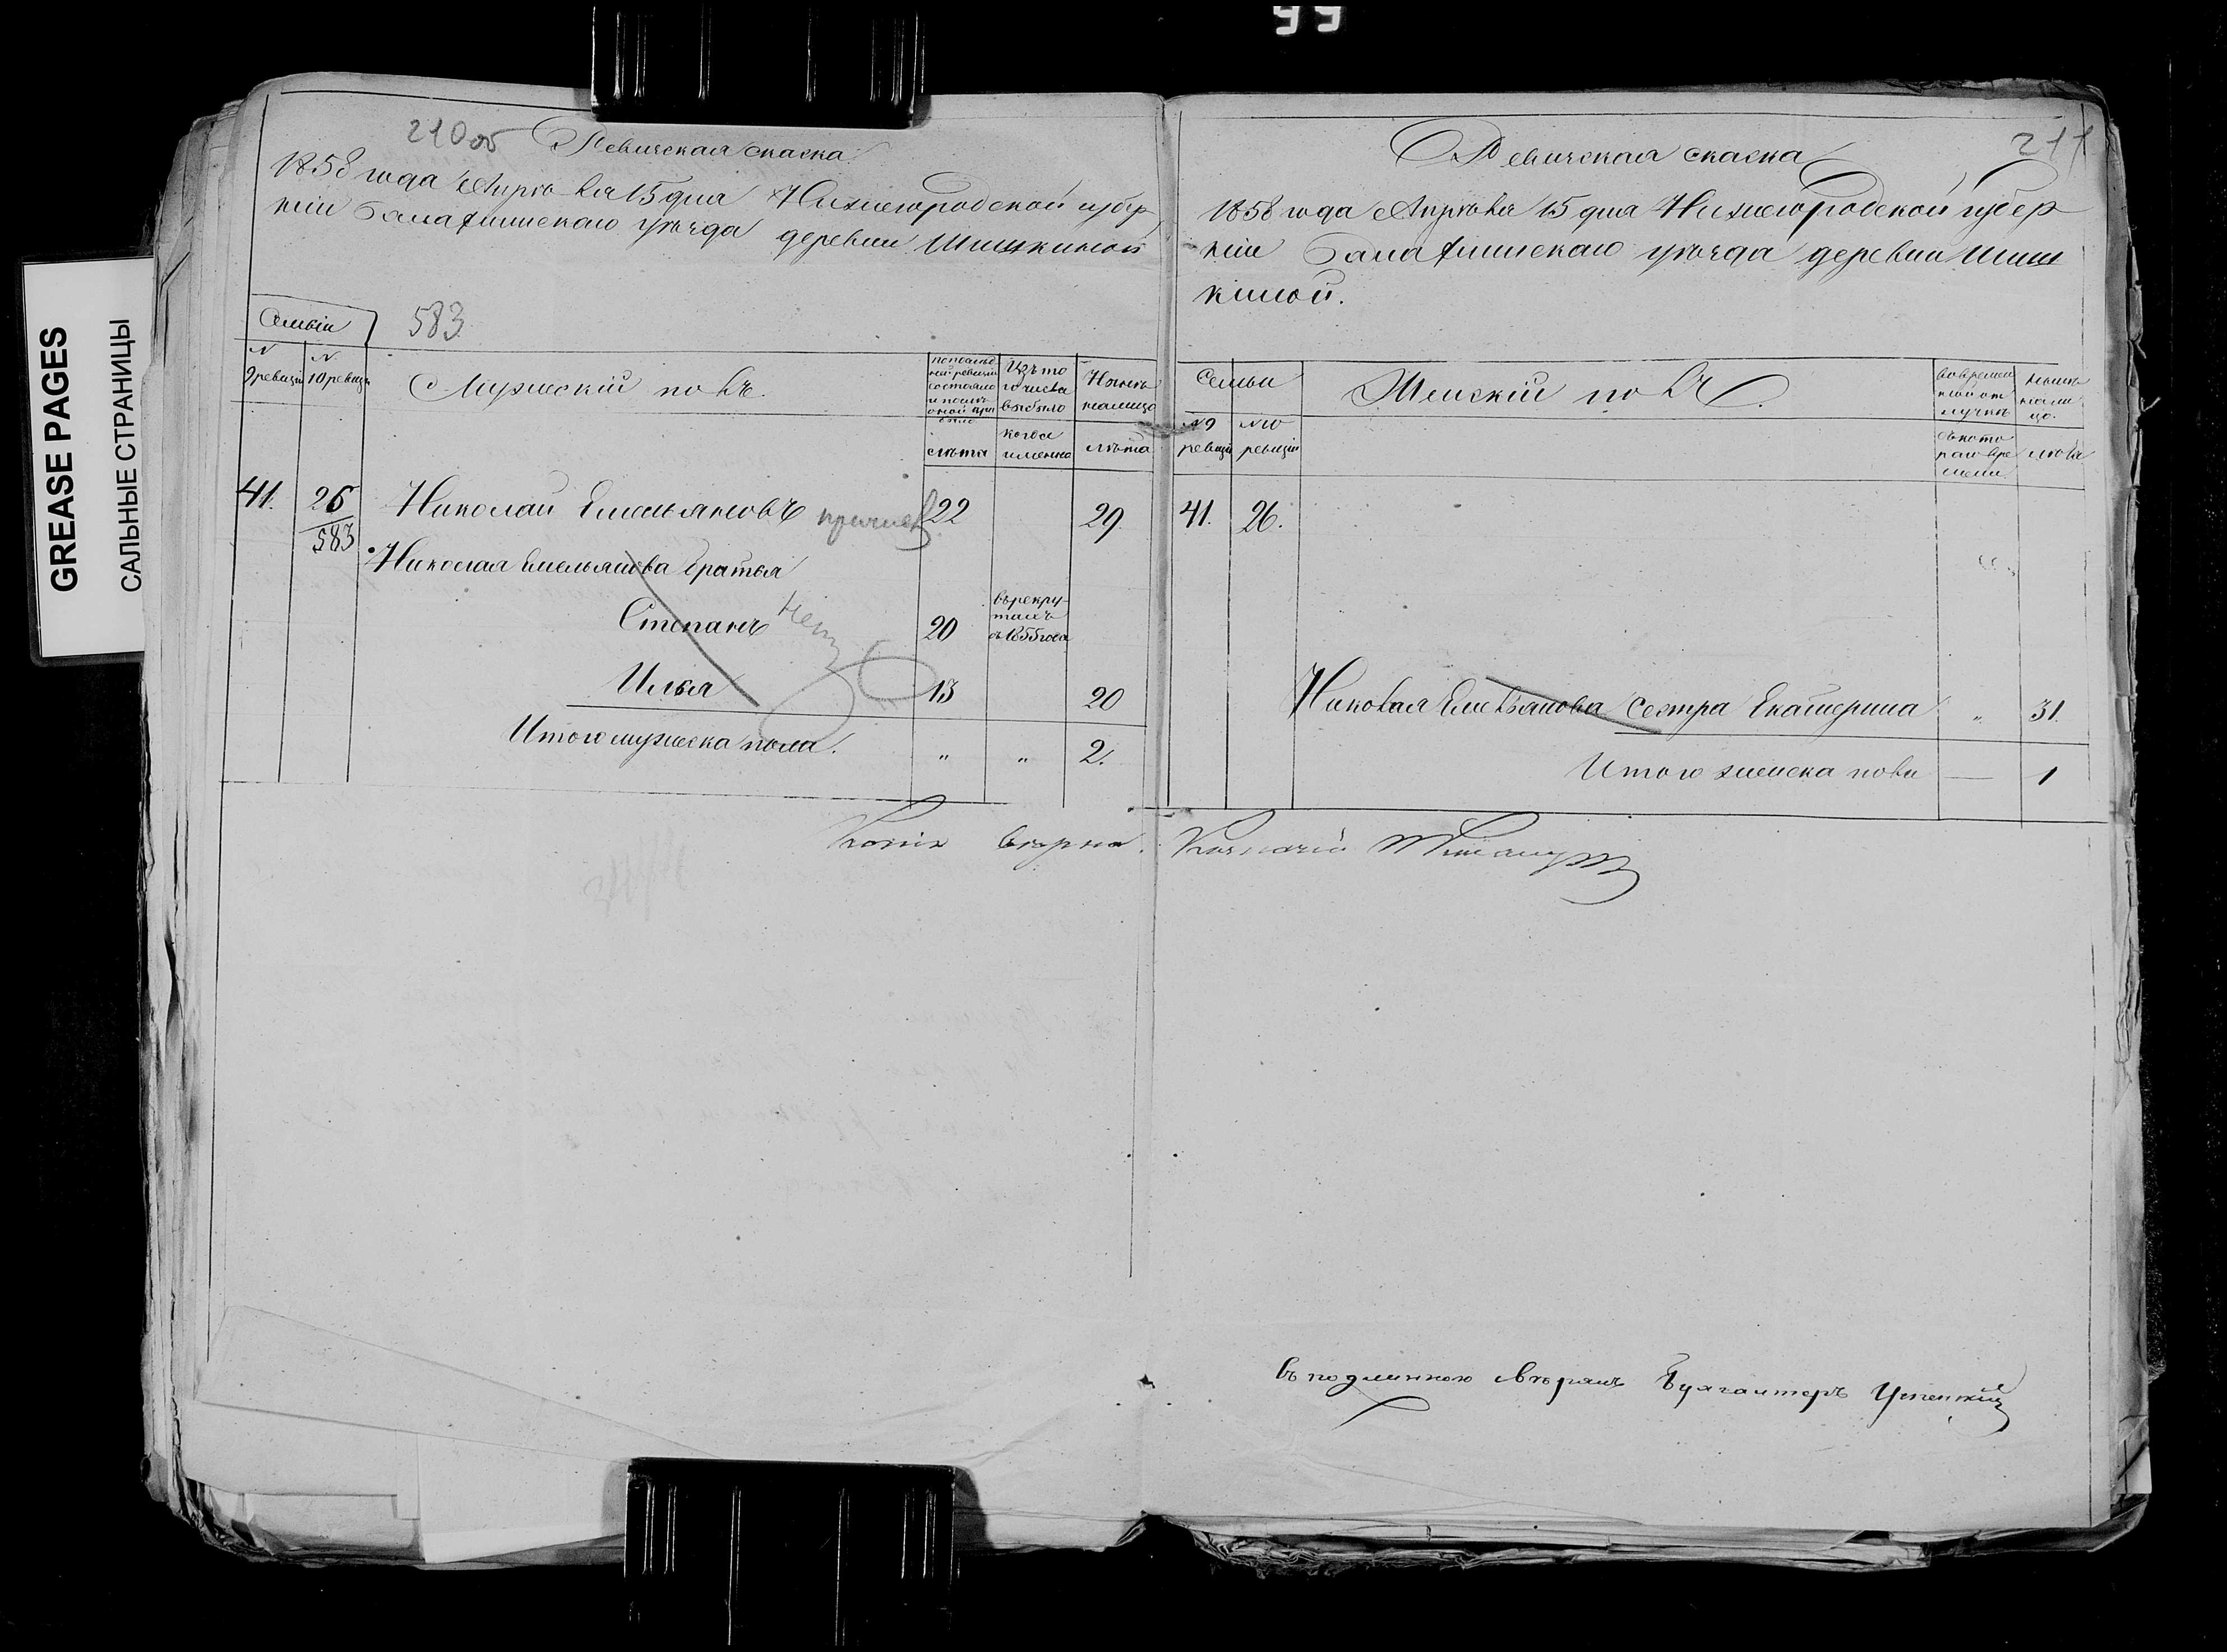 99
GREASE PAGES
САЛЬНЫЕ СТРАНИЦЫ
210об
Ревижская скаска
1858 года Апрѣля 15 дня Нижегородской губер
ніи Балахнинскаго уѣзда деревни Шишкиной
Семьи
583
№
9 ревизіи
№
10 ревизіи
Мужескій полъ.
по послѣд
ней ревизіи
состояло
и послѣ
оной при
было
лѣта
Изъ то
го числа
выбыло
когда
именно
Нынѣ
налицо
лѣта
41. 26 Николай Емельяновъ 22 29.
583
Николая Емельянова братья
Степанъ нетъ 20 въ рекру-
тахъ
съ 1855 года
Илья 13 20
Итого мужеска пола. " " 2.
211
Ревижская скаска
1858 года Апрѣля 15 дня Нижегородской губер
ніи Балахнинскаго уѣзда деревни Шиш
киной.
Семьи
№ 9
ревизіи
№ 10
ревизіи
Женскій полъ.
во времен
ной от
лучкѣ
съ кото
раго вре
мени
нынѣ
нали
цо.
лѣта
41. 26.
Николая Емельянова сестра Екатерина " 31.
Итого женска пола — 1
Копія вѣрна. Казначей
Съ подлиннымъ вѣрилъ Бухгалтеръ Успенскій